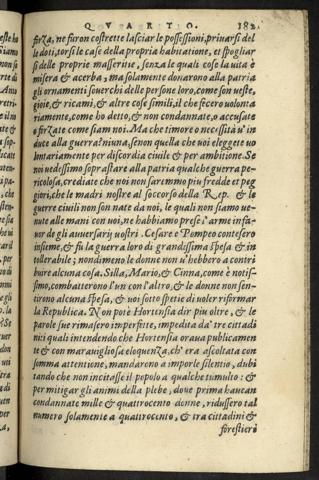 QVARTO. 182
firza, ne furon costrette lasciar le possessioni, priuarsi del
le doti, torsi le case della propria habitatione, et spogliar
si delle proprie masserite, senza le quali cose la uita è
misera & acerba; ma solamente donarono alla patria
gli ornamenti souerchi delle persone loro, come son ueste,
gioie, & ricami, & altre cose simili, il che fecero uolonta
riamente, come ho detto, & non condannate, o accusate
o sforzate come siam noi. Ma che timore o necessità u'in
duce alla guerra? niuna, senon quella che uoi eleggete uo
lontariamente per discordia ciuile & per ambitione. Se
noi uedessimo soprastare alla patria qualche guerra pe-
ricolosa, crediate che noi non saremmo piu fredde et peg
giori, che le madri nostre al soccorso della Rep. & le
guerre ciuili non son nate da noi, le quali non siamo ue-
nute alle mani con uoi, ne habbiamo prese l'arme in fa-
uor de gli auuersarij uostri. Cesare e Pompeo contesero
insieme, & fu la guerra loro di grandissima spesa & in
tollerabile; nondimeno le donne non u'hebbero a contri
buire alcuna cosa, Silla, Mario, & Cinna, come è notis-
simo, combatterono l'un con l'altro, & le donne non sen-
tirono alcuna spesa, & uoi sotto spetie di uoler riformar
la Republica. N on potè Hortensia dir piu oltre, & le
parole sue rimasero imperfitte, impedita da' tre cittadi
ni i quali intendendo che Hortensia oraua publicamen
te & con marauigliosa eloquenza, ch'era ascoltata con
somma attentione, mandarono a imporle silentio, dubi
tando che non incitasse il popolo a qualche tumulto: &
per mitigar gli animi della plebe, doue prima haueuan
condannate mille & quattrocento donne, ridussero tal
numero solamente a quattrocento, & tra cittadini &
forestieri